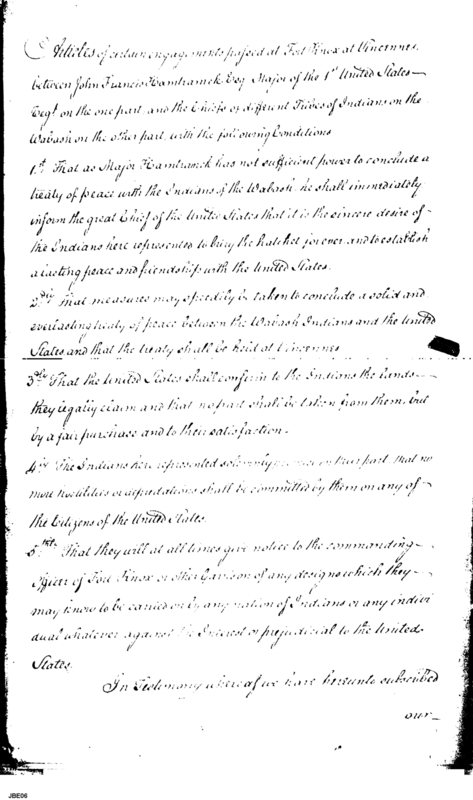 Articles of certain engagements passed at Fort Knox at Vincennes
between John Francis Hamtramck Esq. Major of the 1st United States
Regt on the one part, and the Chiefs of different Tribes of Indians on the
Wabash on the other part, with the following Conditions
1st That as Major Hamtramck has not sufficient power to conclude a
treaty of peace with the Indians of the Wabash he shall immediately
inform the great Chief of the United States that it is the sincere desire of
the Indians here represented to bury the hatchet forever, and to establish
a lasting peace and friendship with the United States.
2dly That measures may speedily be taken to conclude a solid and
everlasting treaty of peace between the Wabash Indians and the United
States and that the treaty shall be held at Vincennes
3dly That the United States shall confirm to the Indians the lands
they legally claim and that no part shall be taken from them, but
by a fair purchase and to their satisfaction.
4ly The Indians here represented solemnly promise on their part, that no
more hostilities or depredations shall be committed by them on any of
the Citizens of the United States.
5thly That they will at all times give notice to the commanding
Officer of Fort Knox or other Garrison of any designs which they
may know to be carried on by any nation of Indians or any indivi
dual whatever against the Interest or prejudicial to the United
States.
In Testimony whereof we have hereunto subscribed
our
JBE06